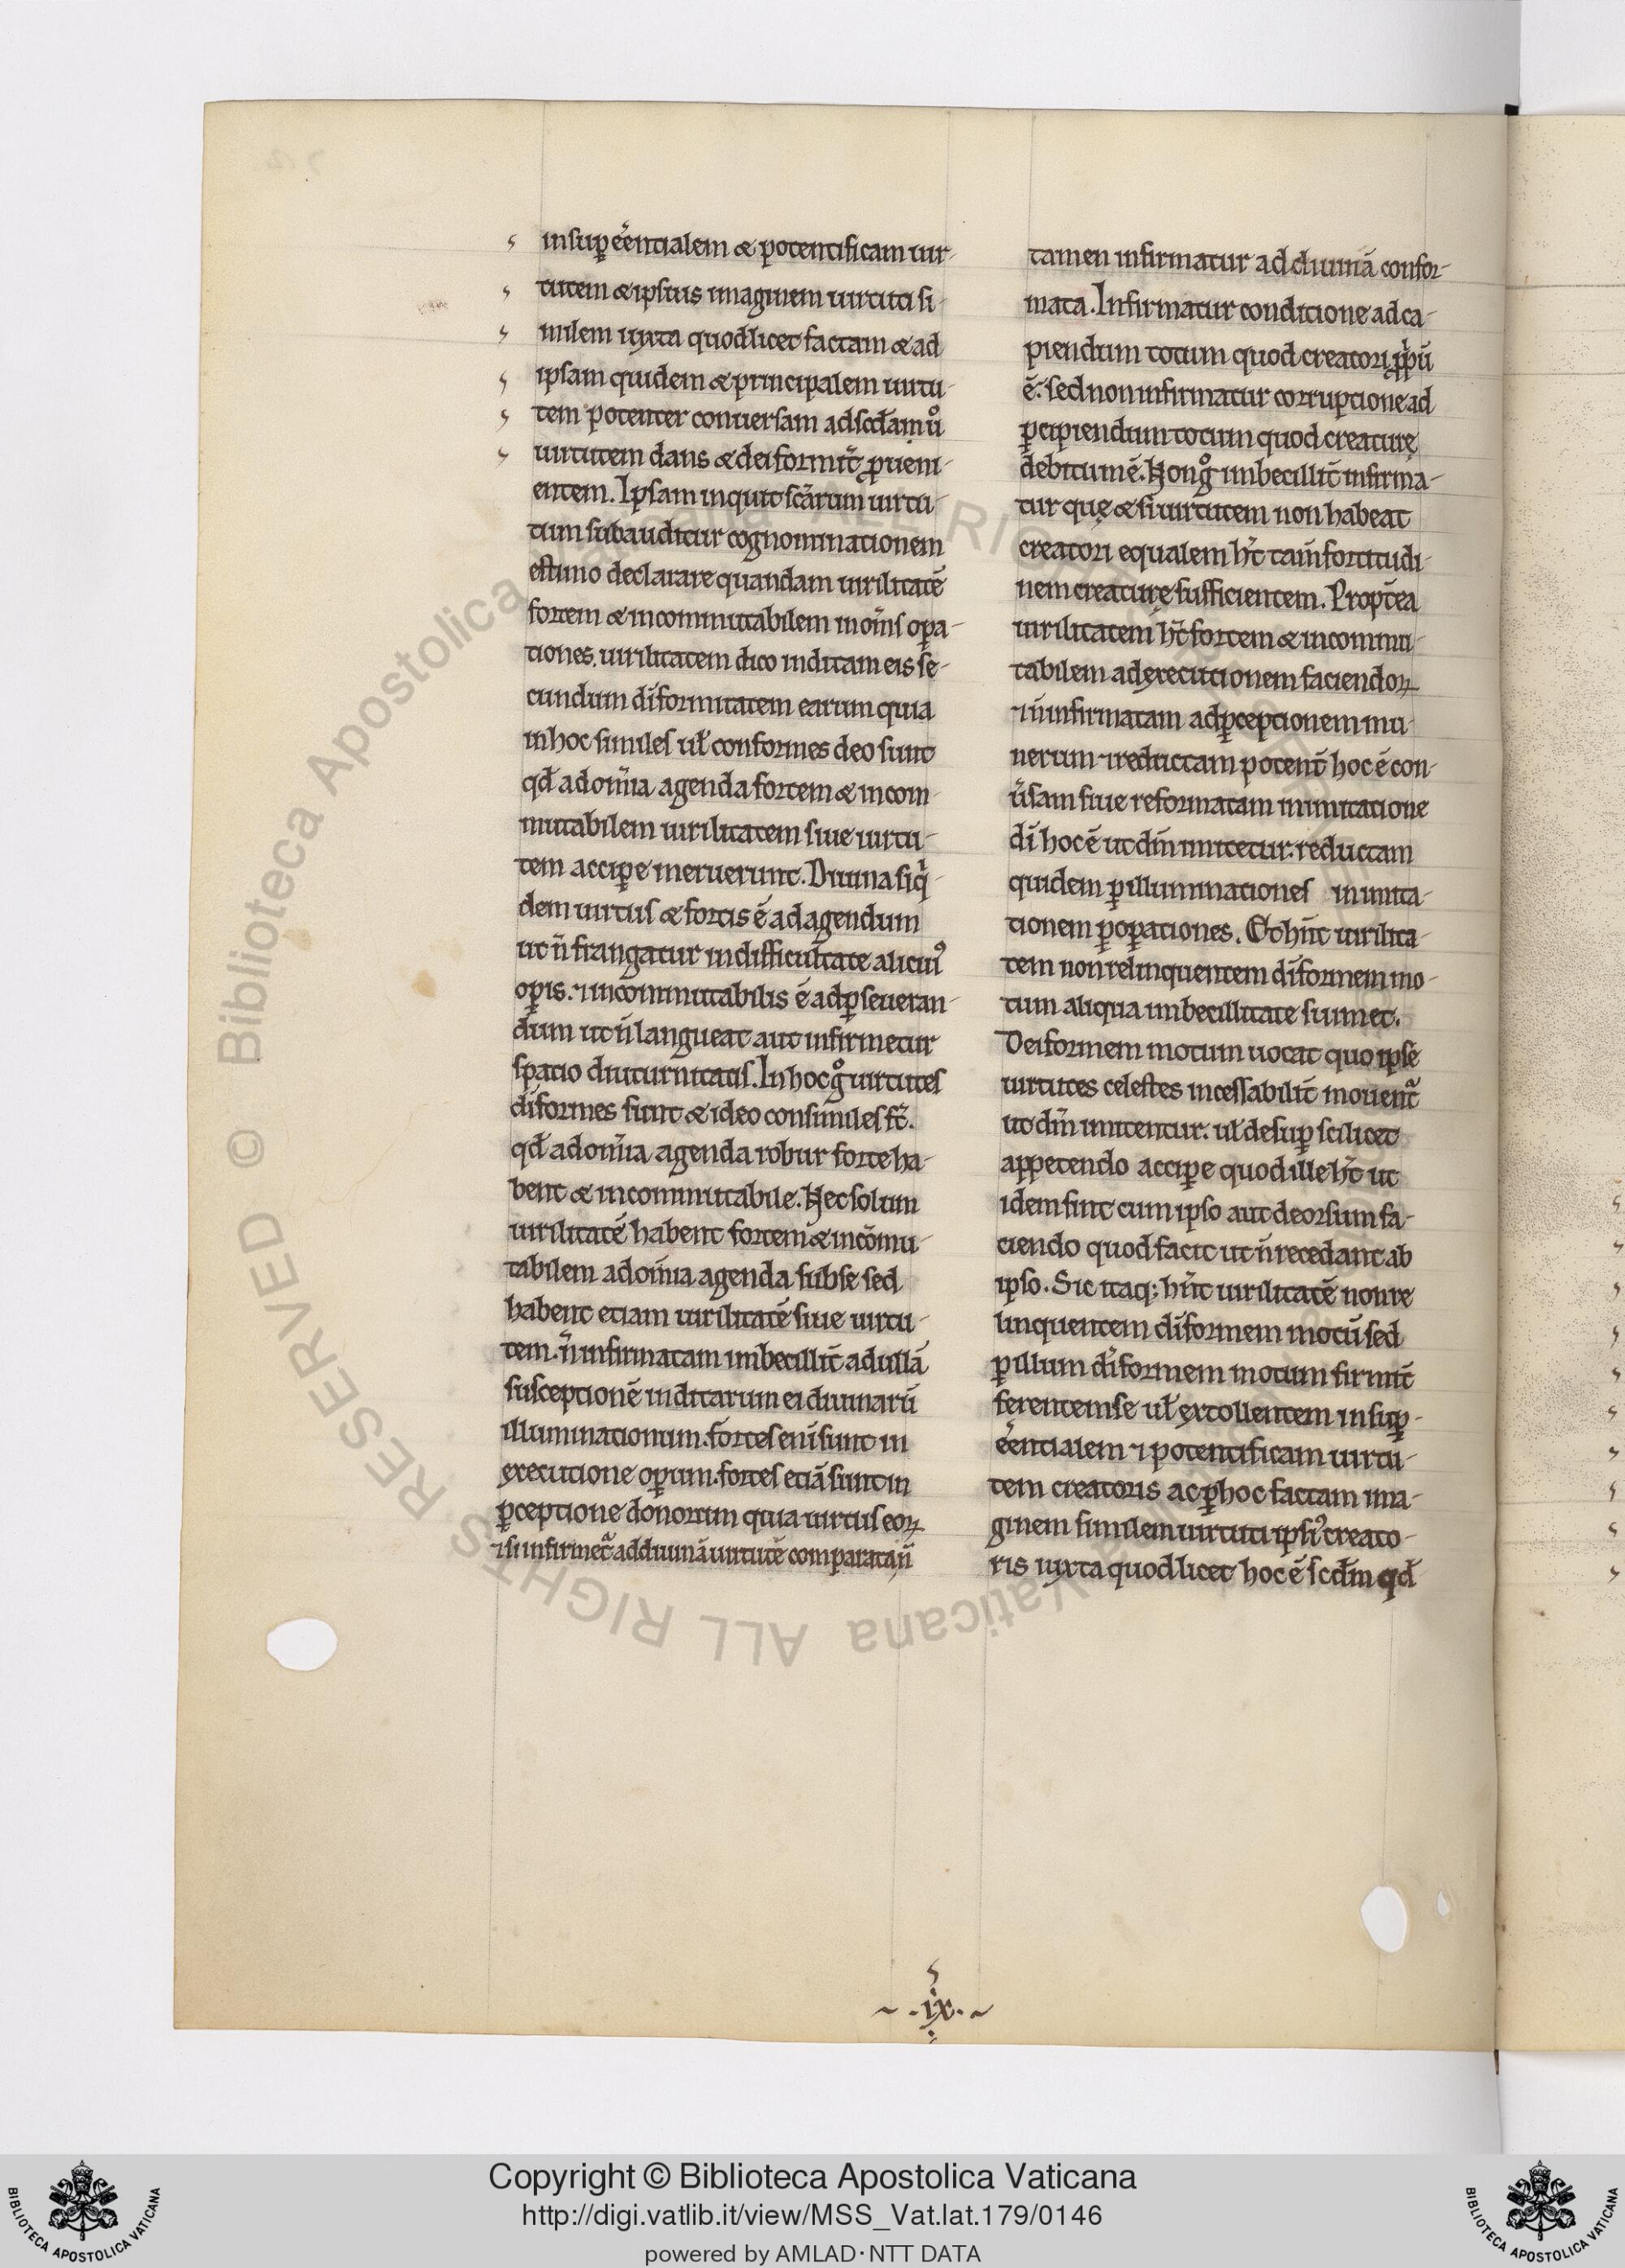 insuꝑ eēntialem & potentificam uir-
tutem & ipsius imaginem uirtuti si-
milem iuxta quod licet factam & ad
ipsam quidem & principalem uirtu-
tem potenter conuersam ad scd̄am ů
uirtutem dans & deiformit̄ ꝓueni-
entem. Ipsam inquit sc̄arum uirtu-
tum subauditur cognominationem
estimo declarare quandam uirilitatē
fortem & incommutabilem in om̄s oꝑa-
tiones. uirilitatem dico inditam eis se-
cundum dī formitatem earum quia
in hoc similes ul̄ conformes deo sunt
qd̄ ad om̄ia agenda fortem & incom-
mutabilem uirilitatem siue uirtu-
tem acciꝑe meruerunt. Diuina siq̇-
dem uirtus & fortis ē ad agendum
ut n̄ frangatur in difficultate alicuiꝰ
oꝑis. ⁊ incommutabilis ē ad ꝑseueran-
dum ut n̄ langueat aut infirmetur
spatio diuturnitatis. In hoc g̊ uirtutes
dī formes sunt & ideo consimiles s̄t.
qd̄ ad om̄ia agenda robur forte ha-
bent & incommutabile. Nec solum
uirilitatē habent fortem & incōmu-
tabilem ad om̄ia agenda sub se sed
habent etiam uirilitatē siue uirtu-
tem. n̄ infirmatam imbecillit̄ ad ullā
susceptionē inditarum ei diuinarū
illuminationum. fortes enī sunt in
executione oꝑum. fortes etiā sunt in
ꝑceptione donorum quia uirtus eoꝝ
⁊ si infirmet̄ ad diuinā uirtutē comparata n̄
tamen infirmatur ad diuinā confor-
mata. Infirmatur conditione ad ca-
piendum totum quod creatori ꝓpⁱū
ē. sed non infirmatur corruptione ad
ꝑcipiendum totum quod creature̜
debitum ē. Non g̊ imbecillit̄ infirma-
tur que̜ & si uirtutem non habeat
creatori equalem h̄t tam̄ fortitudi-
nem creature̜ sufficientem. Propt̄ea
uirilitatem h̄t fortem & incommu-
tabilem ad executionem faciendoꝝ
⁊ n̄ infirmatam ad ꝑceptionem mu-
nerum ⁊ reductam potent̄ hoc ē con-
ūsam siue reformatam in imitatione
dī hoc ē ut dm̄ imitetur. reductam
quidem ꝑ illuminationes in imita-
tionem ꝑ oꝑationes. Et hn̄t uirilita-
tem non relinquentem dī formem mo-
tum aliqua imbecillitate sui met.
Deiformem motum uocat quo ipse
uirtutes celestes incessabilit̄ mouent̄
ut dm̄ imitentur. ul̄ desuꝑ scilicet
appetendo acciꝑe quod ille h̄t ut
idem sint cum ipso aut deorsum fa-
ciendo quod facit ut n̄ recedant ab
ipso. Sic itaq; hn̄t uirilitatē non re
linquentem dī formem motū sed
ꝑ illum dī formem motum firmit̄
ferentem se ul̄ extollentem in suꝑ-
eēntialem ⁊ potentificam uirtu-
tem creatoris ac ꝑ hoc factam ima-
ginem similem uirtuti ipsiꝰ creato-
ris iuxta quod licet hoc ē scd̄m qd̄
~ .ix. ~
Copyright © Biblioteca Apostolica Vaticana
http://digi.vatlib.it/view/MSS_Vat.lat.179/0146
powered by AMLAD·NTT DATA
BIBLIOTECA APOSTOLICA VATICANA
BIBLIOTECA APOSTOLICA VATICANA
© Biblioteca Apostolica Vaticana ALL RIGHTS RESERVED